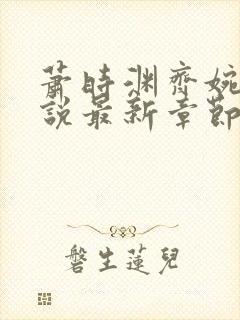 蕭時淵齊婉
說最新章節
磬生蓮兒